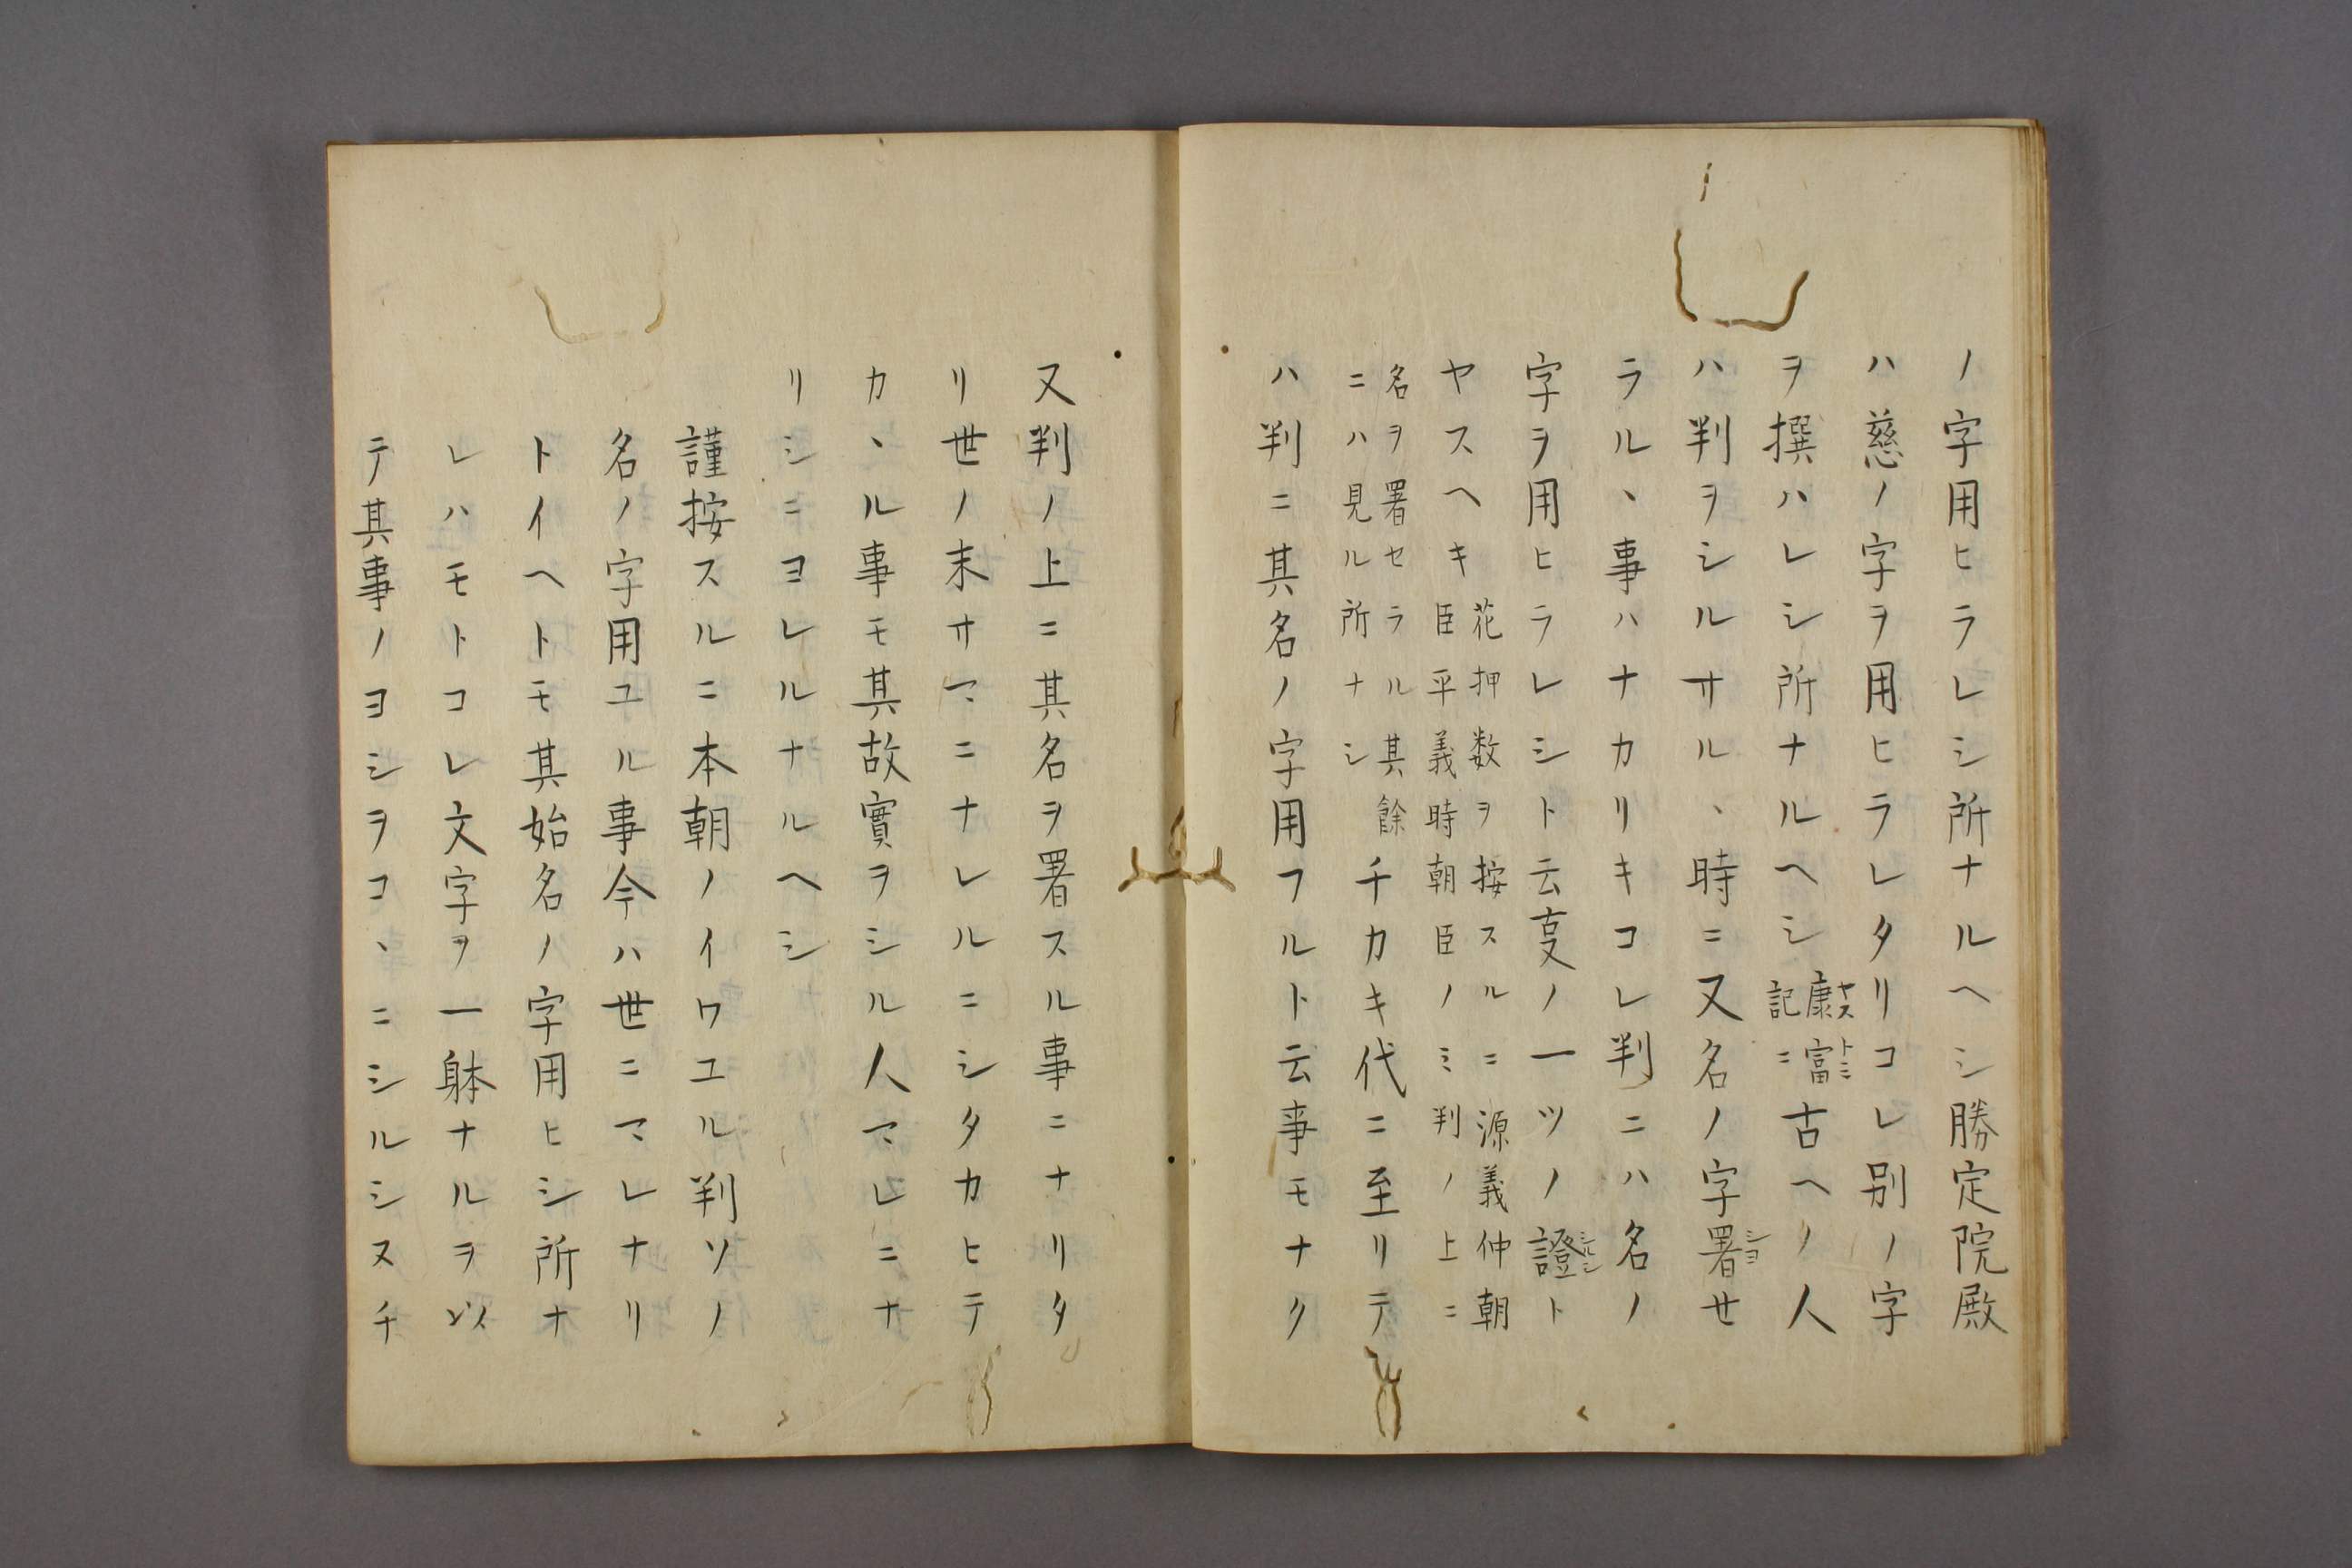 ノ字用ヒラレシ所ナルヘシ勝定院殿
ハ慈ノ字ヲ用ヒラレタリコレ別ノ字
ヲ撰ハレシ所ナルヘシ康富記ニ古ヘノ人
ヤス
トミ
ハ判ヲシルサル、時ニ又名ノ字署せ
シヨ
ラル、事ハナカリキコレ判ニハ名ノ
字ヲ用ヒラレシト云㕝ノ一ツノ證ト
シルシ
ヤスヘキ
花押数ヲ按スルニ源義仲朝
臣平義時朝臣ノミ判ノ上ニ
名ヲ署セラル其餘
ニハ見ル所ナシ
チカキ代ニ至リテ
ハ判ニ其名ノ字用フルト云事モナク
又判ノ上ニ其名ヲ署スル事ニナリタ
リ世ノ末サマニナレルニシタカヒテ
カ、ル事モ其故實ヲシル人マレニナ
リシニヨレルナルヘシ
謹按スルニ本朝ノイワユル判ソノ
名ノ字用ユル事今ハ世ニマレナリ
トイヘトモ其始名ノ字用ヒシ所ナ
レハモトコレ文字ヲ一躰ナルヲ以
テ其事ノヨシヲコ、ニシルシヌチ